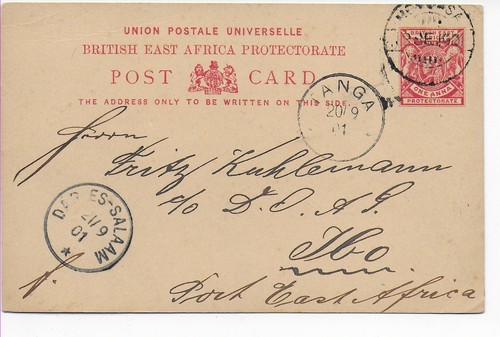 UNION POSTALE UNIVERSELLE
BRITISH EAST AFRICA PROTECTORATE
POST CARD
THE ADDRESS ONLY TO BE WRITTEN ON THIS SIDE.
ONE ANNA
PROTECTORATE
TANGA
20/9
01
Herrn
Fritz Kuhlemann
c/o D.O.A.G.
Ibo
Port East Africa
DAR-ES-SALAAM
21/9
01
*